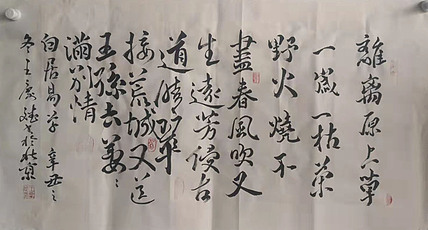 離離原上草
一歲一枯榮
野火燒不
盡春風吹又
生遠芳侵古
道晴翠
接荒城又送
王孫去萋々
滿別情
白居易草 辛丑之
冬王慶書於北京